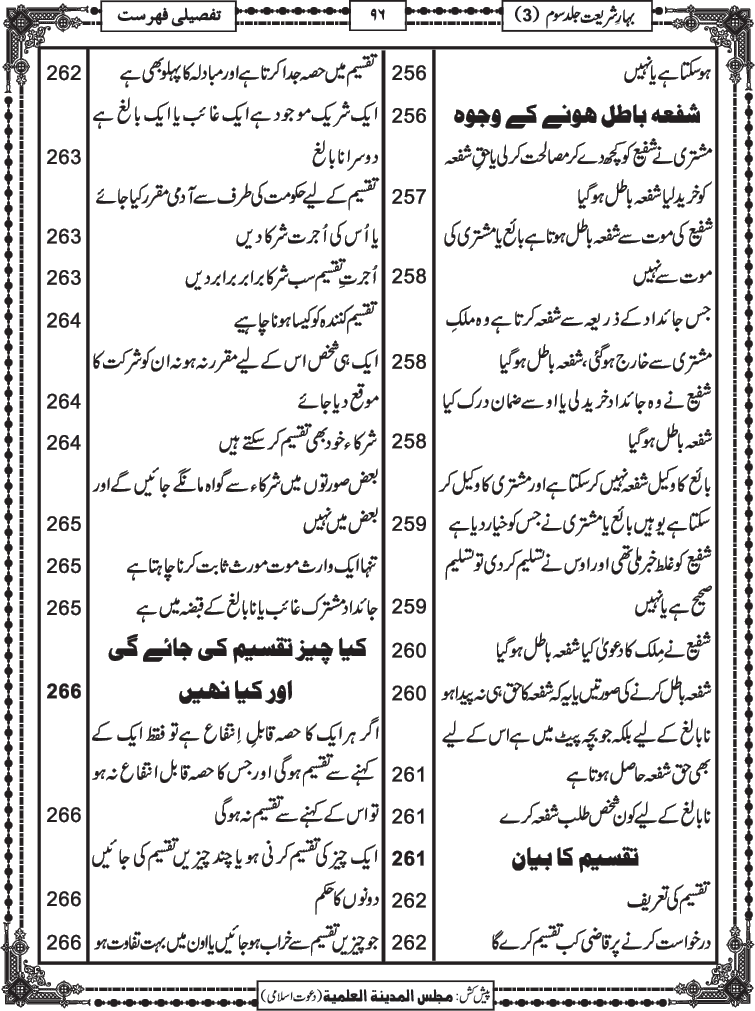 بہارِ شریعت جلد سوم (3)
۹۶
تفصیلی فہرست
ہو سکتا ہے یا نہیں 256
شفعہ باطل ہونے کے وجوہ 256
مشتری نے شفیع کو کچھ دے کر مصالحت کر لی یا حقِ شفعہ
کو خرید لیا شفعہ باطل ہو گیا 257
شفیع کی موت سے شفعہ باطل ہوتا ہے بائع یا مشتری کی
موت سے نہیں 258
جس جائداد کے ذریعہ سے شفعہ کرتا ہے وہ ملکِ
مشتری سے خارج ہو گئی، شفعہ باطل ہو گیا 258
شفیع نے وہ جائداد خرید لی یا اوسے ضمان درک کیا
شفعہ باطل ہو گیا 258
بائع کا وکیل شفعہ نہیں کر سکتا ہے اور مشتری کا وکیل کر
سکتا ہے یوہیں بائع یا مشتری نے جس کو خیار دیا ہے 259
شفیع کو غلط خبر ملی تھی اور اوس نے تسلیم کر دی تو تسلیم
صحیح ہے یا نہیں 259
شفیع نے مِلک کا دعویٰ کیا شفعہ باطل ہو گیا 260
شفعہ باطل کرنے کی صورتیں یا یہ کہ شفعہ کا حق ہی نہ پیدا ہو 260
نابالغ کے لیے بلکہ جو بچہ پیٹ میں ہے اس کے لیے
بھی حق شفعہ حاصل ہوتا ہے 261
نابالغ کے لیے کون شخص طلب شفعہ کرے 261
تقسیم کا بیان 261
تقسیم کی تعریف 262
درخواست کرنے پر قاضی کب تقسیم کرے گا 262
تقسیم میں حصہ جدا کرتا ہے اور مبادلہ کا پہلو بھی ہے 262
ایک شریک موجود ہے ایک غائب یا ایک بالغ ہے
دوسرا نابالغ 263
تقسیم کے لیے حکومت کی طرف سے آدمی مقرر کیا جائے
یا اُس کی اُجرت شرکا دیں 263
اُجرتِ تقسیم سب شرکا برابر برابر دیں 263
تقسیم کنندہ کو کیسا ہونا چاہیے 264
ایک ہی شخص اس کے لیے مقرر نہ ہو نہ ان کو شرکت کا
موقع دیا جائے 264
شرکاء خود بھی تقسیم کر سکتے ہیں 264
بعض صورتوں میں شرکاء سے گواہ مانگے جائیں گے اور
بعض میں نہیں 265
تنہا ایک وارث موت مورث ثابت کرنا چاہتا ہے 265
جائداد مشترک غائب یا نابالغ کے قبضہ میں ہے 265
کیا چیز تقسیم کی جائے گی
اور کیا نہیں 266
اگر ہر ایک کا حصہ قابلِ اِنتفاع ہے تو فقط ایک کے
کہنے سے تقسیم ہوگی اور جس کا حصہ قابل انتفاع نہ ہو
تو اس کے کہنے سے تقسیم نہ ہوگی 266
ایک چیز کی تقسیم کرنی ہو یا چند چیزیں تقسیم کی جائیں
دونوں کا حکم 266
جو چیزیں تقسیم سے خراب ہو جائیں یا اون میں بہت تفاوت ہو 266
پیش کش: مجلس المدینة العلمیة (دعوت اسلامی)